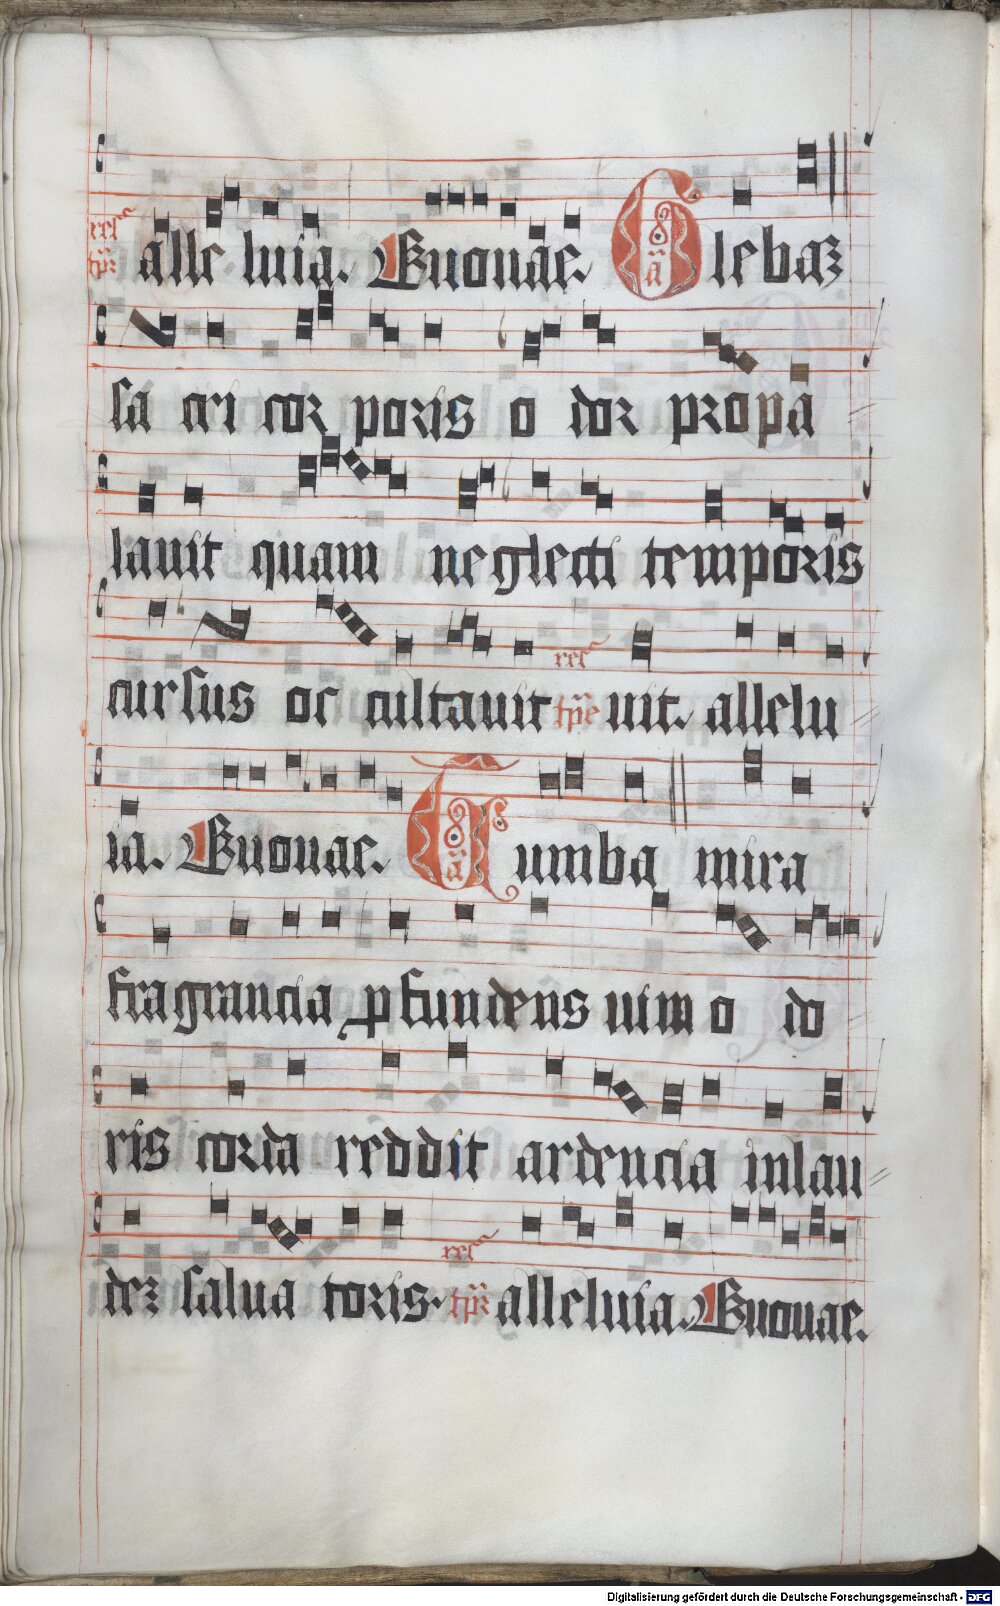 alle luia. Euouae. Glebaʒ
sa cri cor poris o dor propa
lauit quam neglecti temporis
cursus oc cultauit tpe uit. allelu
ia. Euouae. Tumba mira
fragrancia ꝑfundens uim o do
ris corda reddit ardencia inlau
deʒ salua toris. alleluia. Euouae.
Digitalisierung gefördert durch die Deutsche Forschungsgemeinschaft - DFG